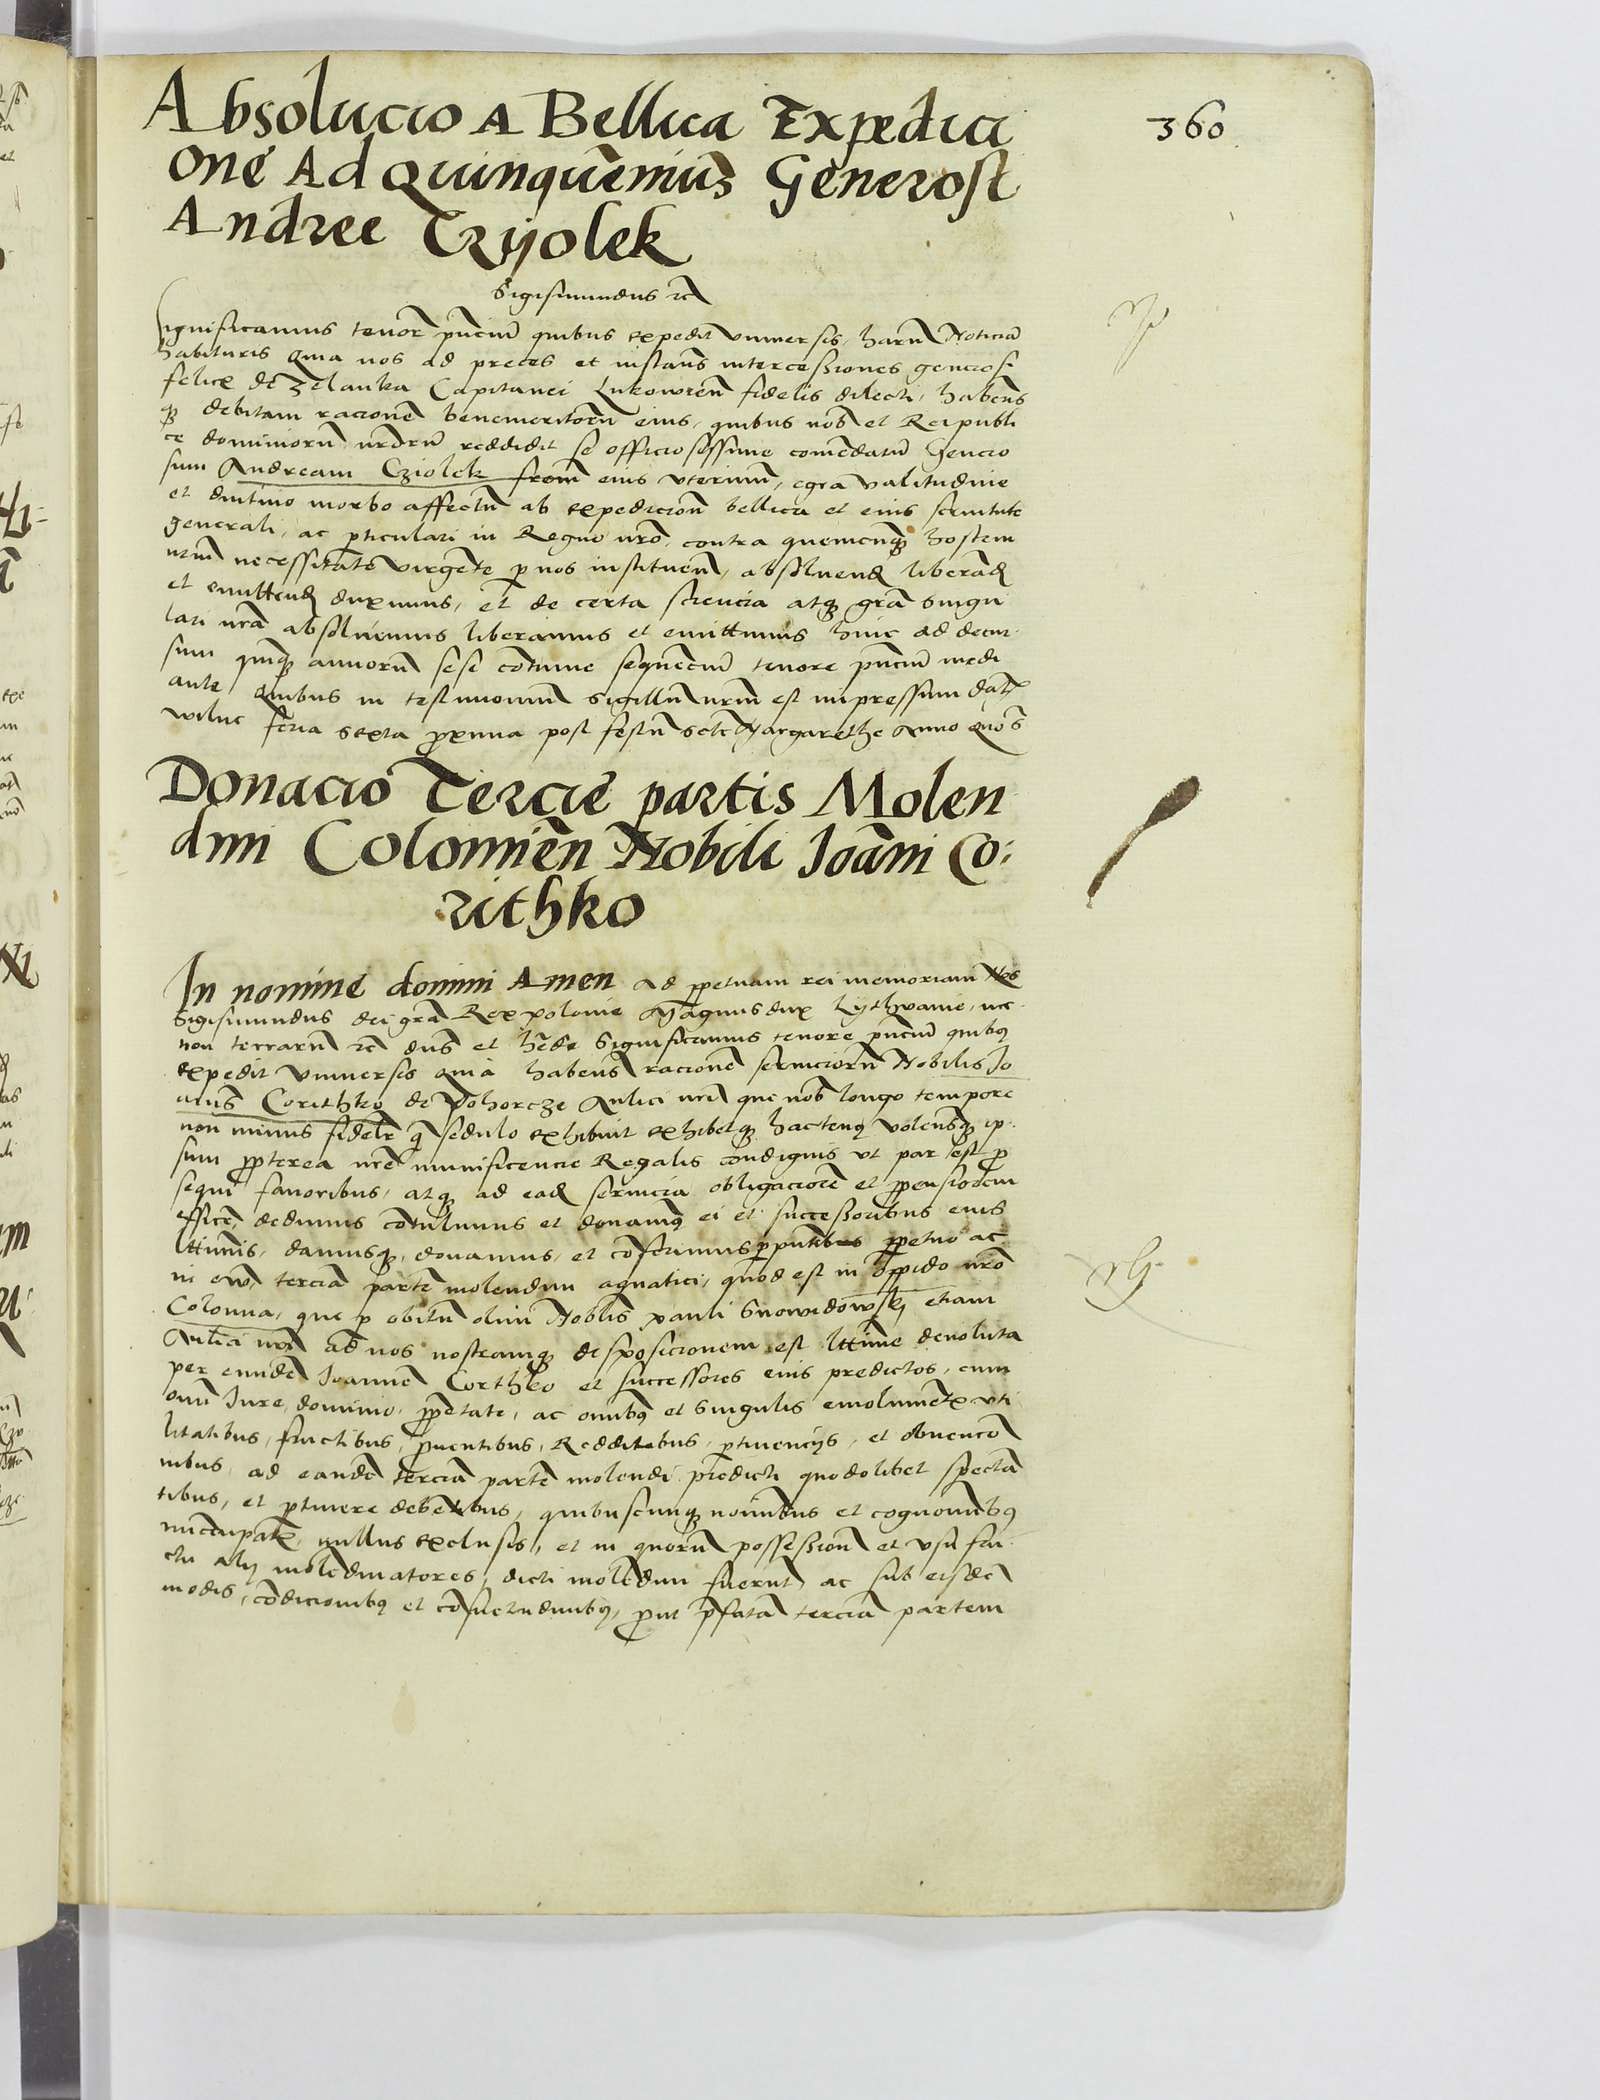 360
Absolucio A Bellica Expedici
one Ad Quinquēniūs Generosi
Andree Czyolek
Sigismundus rc̄
Significamus tenor p̄nciū quibus expedit vniuersis, harū Noticiā
habituris Quia nos ad preces et instans intercessiones generosi
felicx de Zelanka Capitanei Lukowien̄ fidelis dilecti, habens
qȝ debitam racionē benemeritorū eius, quibus nob̄ et Reipubli
ce dominiorū nrōrū reddidit se officiosissime comēdatū Genero
sum Andream Cziolek frēm eius vterinū, egra valitudine
et diutino morbo affectū ab expedicion̄ bellica et eius seruitute
generali, ac p̄ticulari in Regno nrō, contra quemcunqȝ hostem
nrm̄ necessitate vrgente p̄ nos instituen̄, absoluend̄ liberad̄
et emittend̄ duximus, et de certa sciencia atqȝ grā singu
lari nrā absoluimus liberamus et emittimus huic ad decur
sum quinqȝ annorū sese cōtinue sequenciū tenore p̄nciū medi
ante Quibus in testimoniū sigillū nrm̄ est impressum Dat
wilne feria sexta p̄xima post festū scte Margarethe Anno Quo s̄
Donacio Tercie partis Molen
dini Colomien̄ Nobili Joāni Co:
rithko
In nomine domini Amen Ad p̄petuam rei memoriam Nos
Sigismundus dei grā Rex polonie Magnus dux Lythwanie, nec
non terrarū rc̄ dns̄ et hēde Significamus tenore p̄nciū quibꝯ
expedit vniuersis quia habens racionē seruiciorū Nobilis Jo
anis Corithko de Pohorcze Aulici nrī que nob̄ longo tempore
non minus fidelr̄ q̄ sedulo exhibuit exhibetqȝ hactenꝯ volensqȝ ip
sum p̄pterea nrē munificencie Regalis condignis vt par est p̄
sequi fauoribus, atqȝ ad ead̄ seruicia obligaciorē et p̄pensiorem
efficē, dedimus cōtulimus et donauimꝯ ei et successoribus eius
lttimis, damusqȝ, donamus, et cōferimus p̄ p̄ntibus p̄petuo ac
in ewm̄ terciā partē molendini aquatici, quod est in oppido nrō
Colonia, que p̄ obitū olim Noblis̄ pauli Snowidowskj etiam
Aulici nrī ad nos nostramqȝ disposicionem est lttime deuoluta
per eunde Joannē Corthko et successores eius predictos, cum
omī Jure, dominio, p̄p̄etate, ac omnibꝯ et singulis emolumētx vti
litatibus, fructibus, p̄uentibus, Redditibus, p̄tinencijs, et obuencō
nibus, ad eandē terciā partē molendi predicti quodolibet spectā
tibus, et p̄tinere debentibus, quibuscunqȝ noinībus et cognoinībꝯ
nuncupatx, nullus exclusis, et in quorū possession̄ et vsu fru
ctu alij molēdinatores, dicti molēdini fuerūt, ac sub eisdē
modis, cōdicionibꝯ et cōsuetudinibꝯ, p̄ut p̄fatā terciā partem